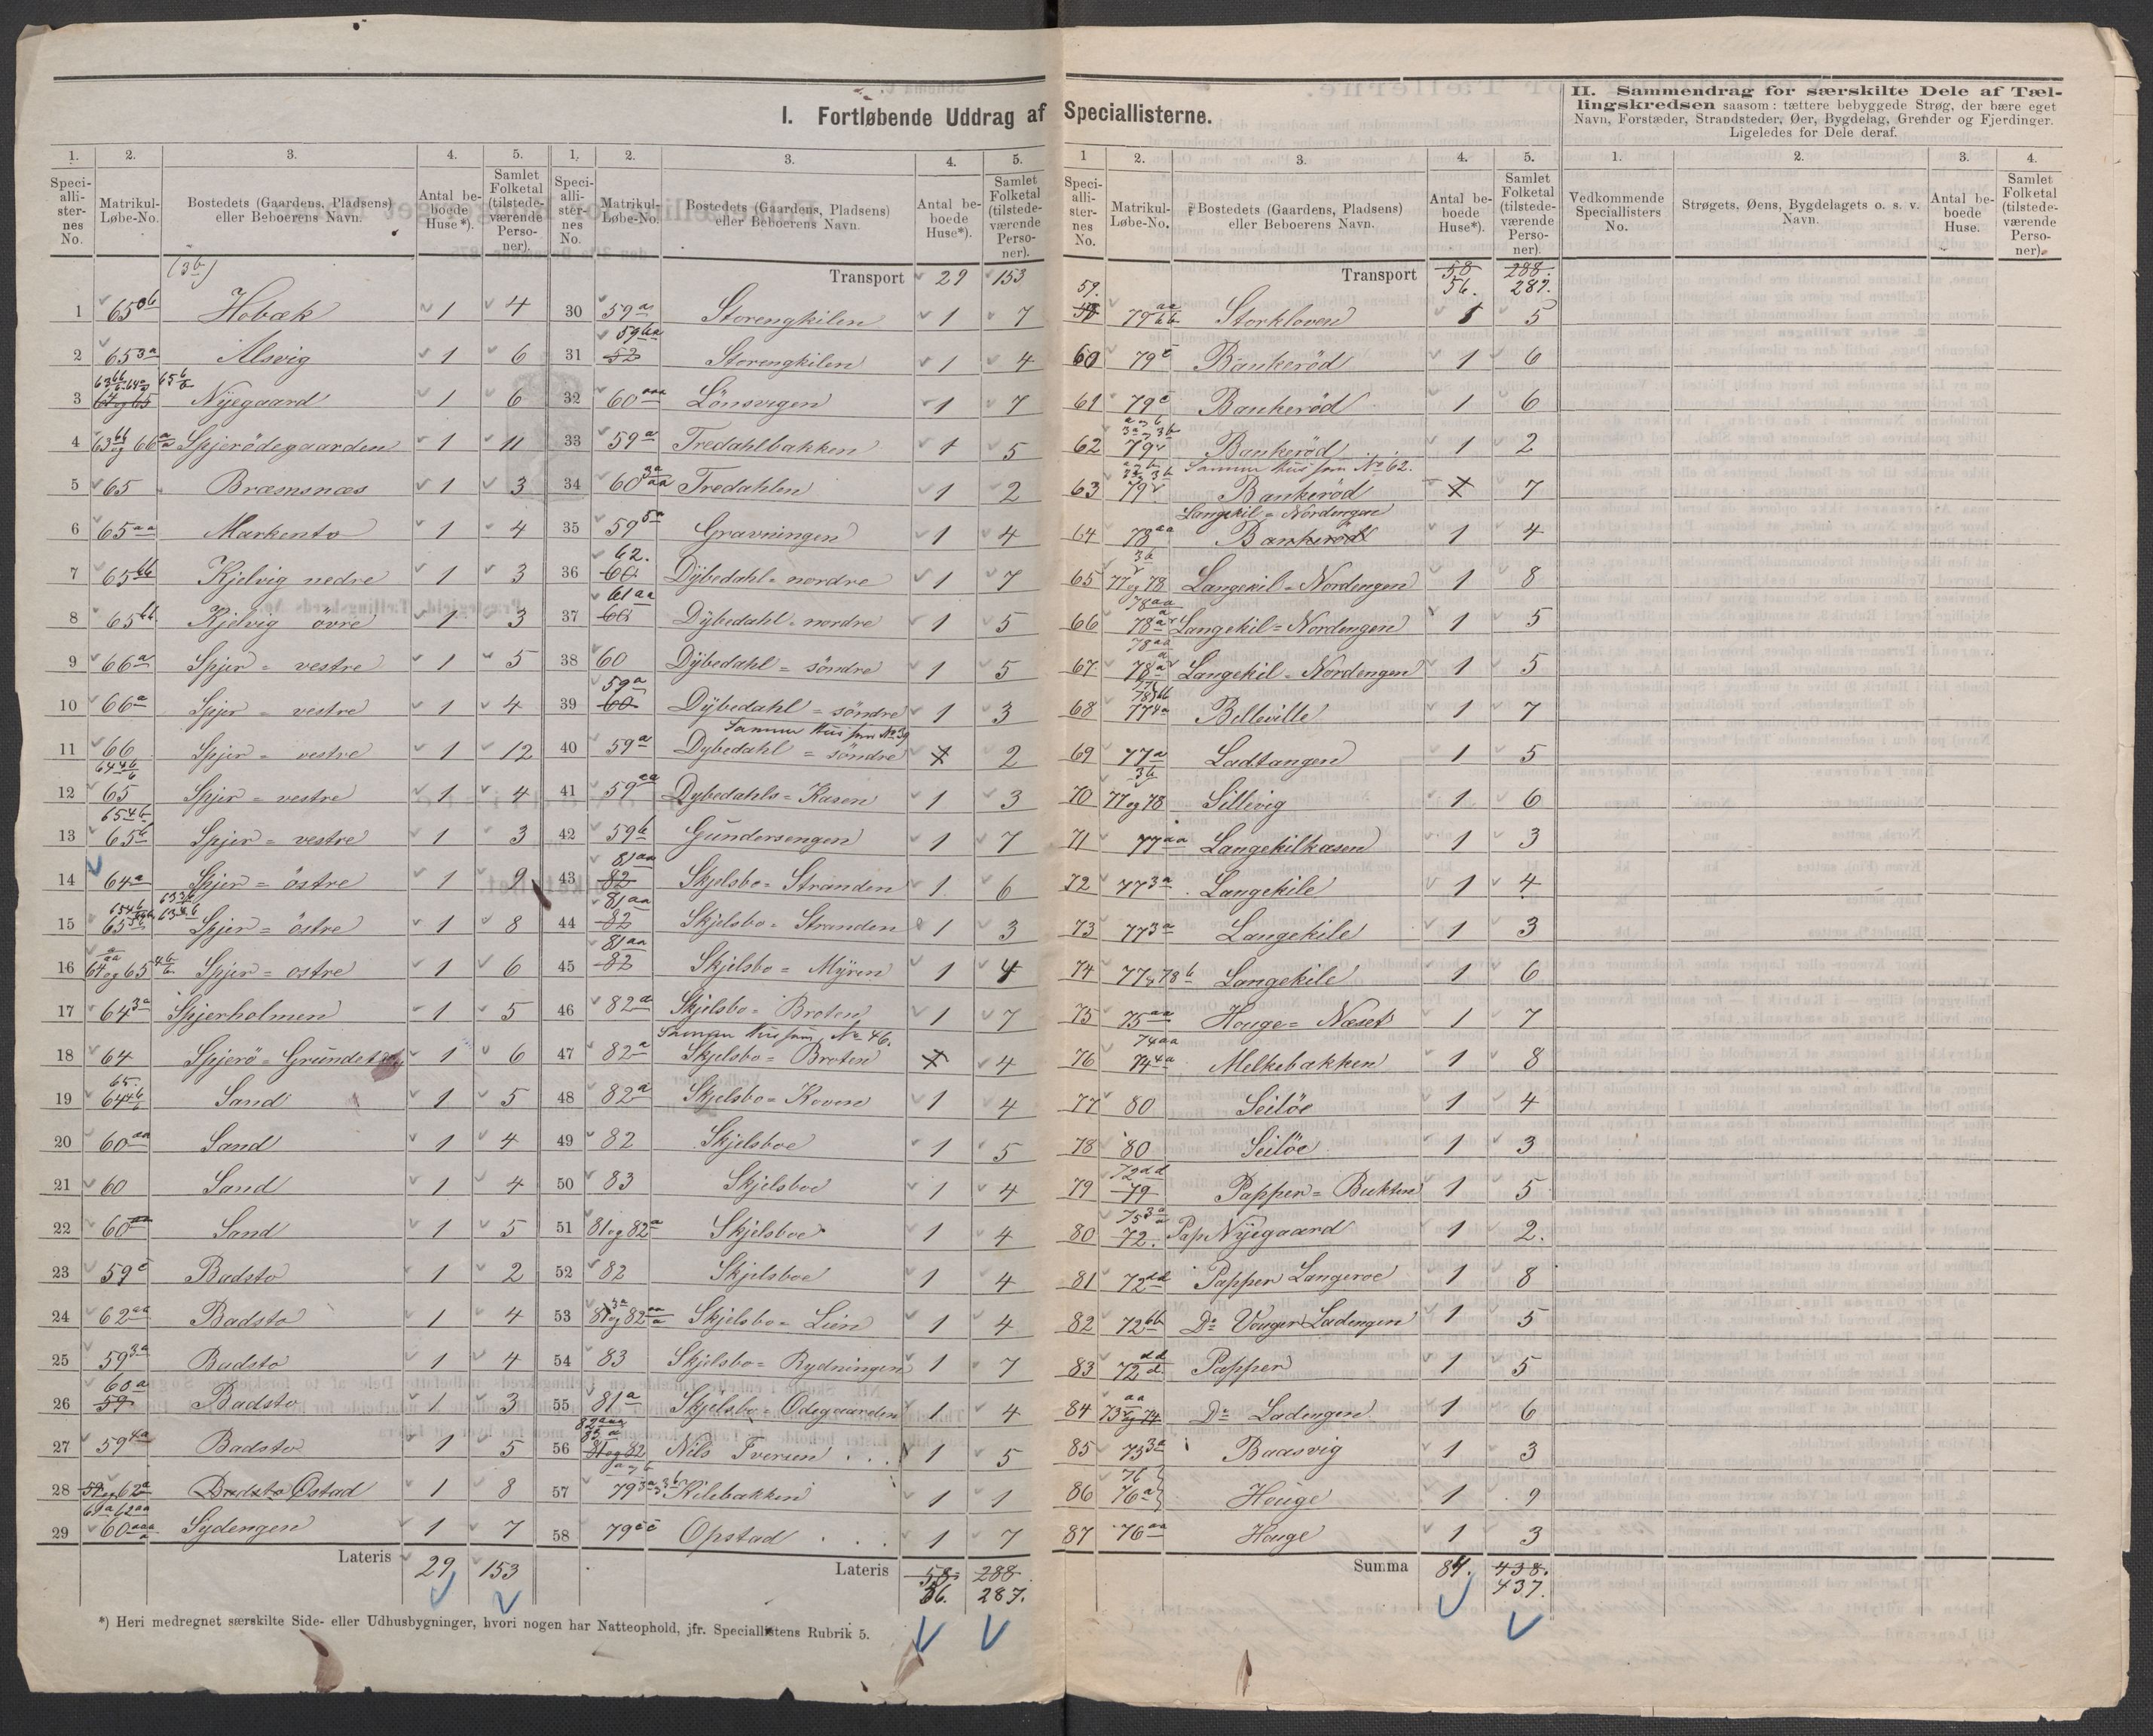 I. Fortløbende Uddrag af Speciallisterne.
II. Sammendrag for særskilte Dele af Tæl-
lingskredsen saasom: tættere bebyggede Strøg, der bære eget
Navn, Forstæder, Strandsteder, Øer, Bygdelag, Grender og Fjerdinger.
Ligeledes for Dele deraf.
1. 2. 3. 4. 5. 1. 2. 3. 4. 5. 1 2. 3. 4. 5. 1. 2. 3. 4.
Speci-alli-ster-nes No. Matrikul-Løbe-No. Bostedets (Gaardens, Pladsens) eller Beboerens Navn. Antal be-boede Huse*). Samlet Folketal (tilstede-værende Perso-ner).
Speci-alli-ster-nes No. Matrikul-Løbe-No. Bostedets (Gaardens, Pladsens) eller Beboerens Navn. Antal be-boede Huse*). Samlet Folketal (tilstede-værende Perso-ner).
Speci-alli-ster-nes No. Matrikul-Løbe-No. Bostedets (Gaardens, Pladsens) eller Beboerens Navn. Antal be-boede Huse*). Samlet Folketal (tilstede-værende Perso-ner).
Vedkommende Speciallisters No. Strøgets, Øens, Bygdelagets o. s. v. Navn. Antal be-boede Huse. Samlet Folketal (tilstede-værende Perso-ner).
(3b)
1 Hobæk 1 4
2 65 3a Alsvig 1 6
3 Nyegaard 1 6
4 Spjerödegaarden 1 11
5 65 Bræmsnæs 1 3
6 65 aa Markento 1 4
7 65 bb Kjelvig nedre 1 3
8 65 bb Kjelvig övre 1 3
9 66 a Spjer = vestre 1 5
10 66 a Spjer = vestre 1 4
11 66 Spjer = vestre 1 12
12 65 Spjer = vestre 1 4
13 65 b Spjer = vestre 1 3
14 64 a Spjer = östre 1 9
15 Spjer = östre 1 8
16 64 og 65 Spjer = ostre 1 6
17 64 3a Spjerholmen 1 5
18 64 Spjerö = Grundet 1 6
19 65. 64 4b Sand 1 5
20 60 aa Sand 1 4
21 60 Sand 1 4
22 60 aa Sand 1 5
23 59 c Badsto 1 2
24 62 aa Badsto 1 4
25 59 3a Badsto 1 4
26 60 a 59 Badsto 1 3
27 59 4a Badsto 1 5
28 59 og 62 a Badsto Östad 1 8
29 60 aaa Sydengen 1 7
Lateris 29 153
Transport 29 153
30 59 a Storengkilen 1 7
31 59 ba 52 Storengkilen 1 4
32 60 aaa Lönsvigen 1 7
33 59 a Tredahlbakken 1 5
34 60 3a aa Tredahlen 1 2
35 59 5a Gravningen 1 4
36 62. 60 Dÿbedahl = nordre 1 7
37 61 aa 60 Dÿbedahl = nordre 1 5
38 60 Dÿbedahl = söndre 1 5
39 59 a 60 Dÿbedahl = söndre 1 3
Samme Hus som No 39
40 59 a Dybedahl = söndre 1 2
41 59 aa Dybedahls = Kasen 1 3
42 59 b Gundersengen 1 7
43 81 aa 82 Skjelsbo = Stranden 1 6
44 81 aa 82 Skjelsbo = Stranden 1 3
45 81 aa 82 Skjelsbo = Mÿren 1 4
46 82 a Skjelsbo = Broten 1 7
Samme Hus som No 46.
47 82 a Skjelsbo = Broten 1 4
48 82 a Skjelsbo = Roven 1 4
49 82 Skjelsboe 1 5
50 83 Skjelsboe 1 4
51 81 og 82 a Skjelsboe 1 4
52 82 Skjelsboe 1 4
53 81 3a og 82 aa a Skjelsbo = Lien 1 4
54 83 Skjelsbo = Rydningen 1 7
55 81 a Skjelsbo = Ödegaarden 1 4
56 81 og 82 Nils Iversen . . . 1 5
57 79 3a 3b Kilebakken 1 1
58 79 cc Opstad . . . 1 7
Lateris 58 288
56. 287.
*) Heri medregnet særskilte Side- eller Udhusbygninger, hvori nogen har Natteophold, jfr. Speciallistens Rubrik 5.
Transport 58 288.
56. 287.
59. 79 aa bb Storkloven 1 5
60 79 c Bankeröd 1 6
61 79 c Bankeröd 1 6
62 79 Bankeröd 1 2
Samme Hus som No 62.
63 79 Bankeröd 1 7
Langekil = Nordengen
64 78 aa Bankeröd 1 4
65 77 og 78 3b Langekil = Nordengen 1 8
66 78 aa 78 a Langekil = Nordengen 1 5
67 78 aa 78 a Langekil = Nordengen 1 5
68 77 4a Belleville 1 7
69 77 a Ladtangen 1 5
70 77 og 78 3b Sillivig 1 6
71 77 aa Langekilkasen 1 3
72 77 3a Langekile 1 4
73 77 3a Langekile 1 3
74 77 og 78 b Langekile 1 6
75 75 aa Houge = Næset 1 7
76 74 aa 74 4a Melkebakken 1 8
77 80 Seilöe 1 4
78 80 Seilöe 1 3
79 72 dd 79 Papper = Bukten 1 5
80 75 3a 72. Pap Nyegaard 1 2.
81 72 dd Papper Langeroe 1 8
82 72 bb Do Vouger Ladengen 1 5
83 72 dd d Papper 1 5
84 73 aa og 74 Do Ladengen 1 6
85 73 3a Baasvig 1 3
86 76 76 a Houge 1 9
87 76 aa Houge 1 3
Summa 84. 438.
437.